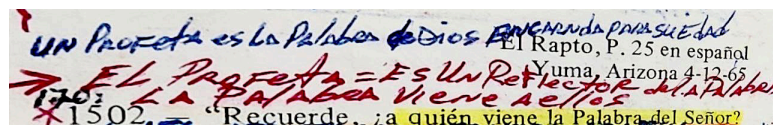 UN PROFETA es LA PALABRA de DIOS ENCARNADA PARA SU EDAD
El Rapto, P. 25 en español
Yuma, Arizona 4-12-65
EL PROFETA = ES UN REFLECTOR de LA PALABRA
LA PALABRA VIENE A ELLOS
1502.— “Recuerde, ¿a quién viene la Palabra del Señor?